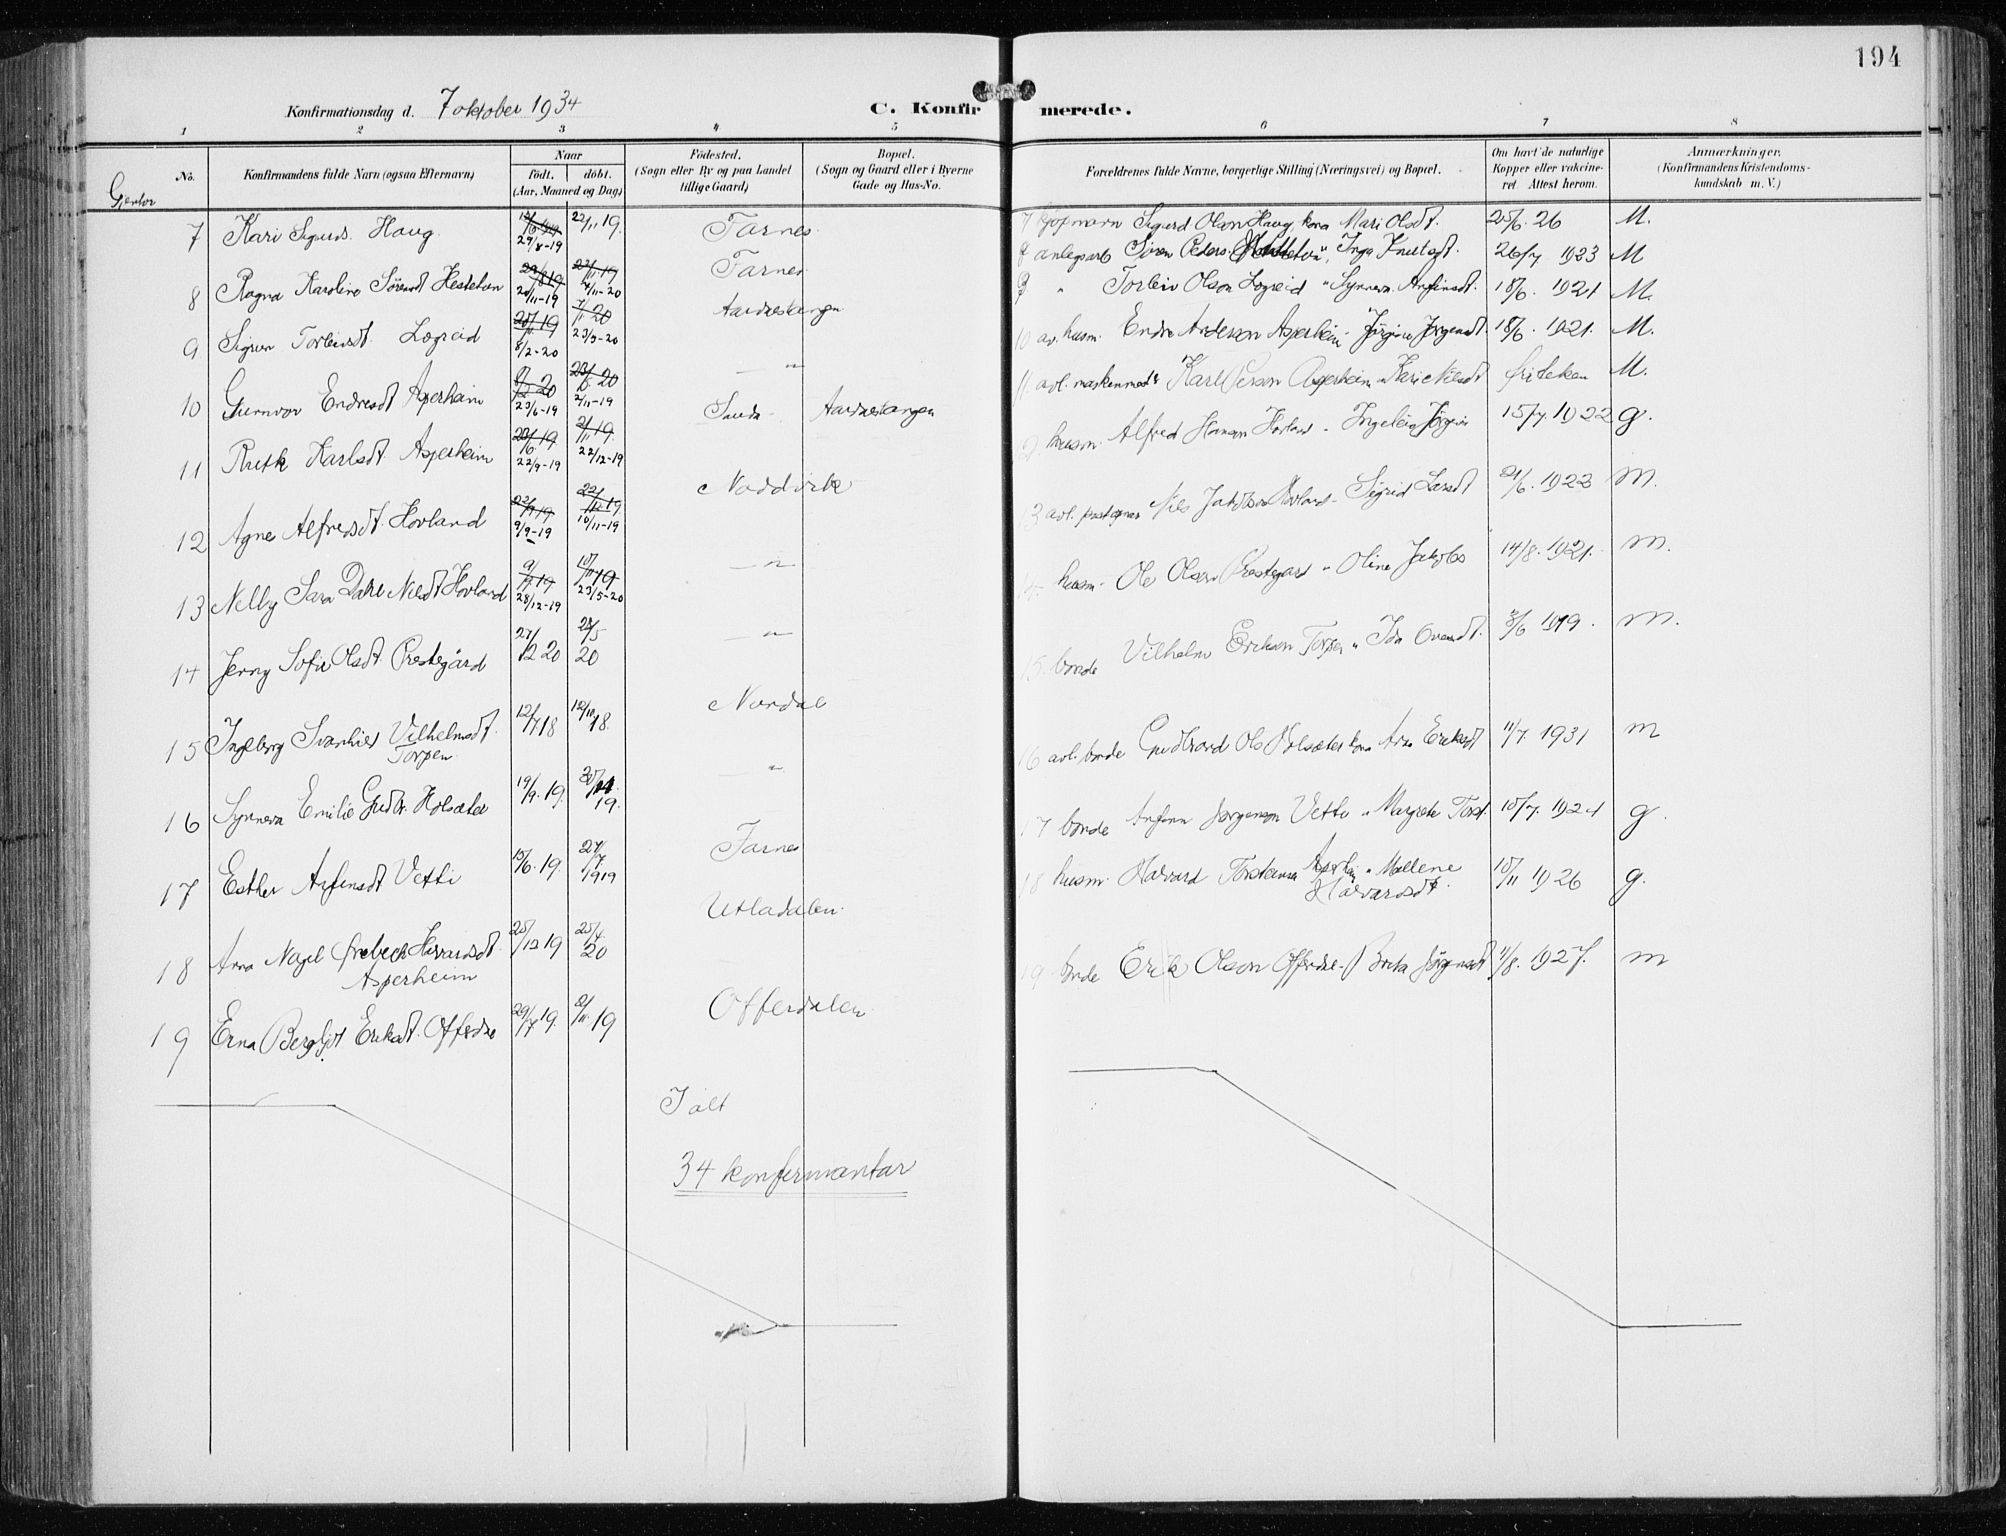 194
Konfirmationsdag d. 7 oktober 1934
C. Konfirmerede.
1 2 3 4 5 6 7 8
No.
Konfirmandens fulde Navn (ogsaa Efternavn)
Naar
födt. döbt.
(Aar, Maaned og Dag)
Födested.
(Sogn eller By og paa Landet
tillige Gaard)
Bopæl.
(Sogn og Gaard eller i Byerne
Gade og Hus-No.
Forældrenes fulde Navne, borgerlige Stilling (Næringsvei) og Bopæl.
Om havt de naturlige
Kopper eller vakcine-
ret. Attest herom.
Anmærkninger.
(Konfirmandens Kristendoms-
kundskab m. V.)
Gjentor
7 Kari Sigurds. Haug 29/8-19 22/11 19. Farnes
7 Sigurd Olson Haug, kona Mari Olsdt. 25/6. 26 M.
8 Ragna Karoline Sørensdt Hestetun 20/11-19 4/11-20 Farnes
anlegsarb Søren Peders. Inga Knutsdt. 26/7 1923 M
9 Sigrun Torleivsdt. Lægreid 8/2-20 23/5-20 Aardalstangen
" Torleiv Olson Lægreid " Synneva Anfinsdt. 18/6. 1921 M.
10 Gunvor Endresdt Asperheim 23/6-19 2/11-19 — " —
10 av. husm. Endre Anderson Asperheim - Jørgine Jørgensdt. 18/6. 1921. M.
11 Ruth Karlsdt Asperheim 22/9-19 22/12-19 Sauda - Aardalstangen
11 avl. maskinmeds Karl Person Asperheim " Kari Nilsdt M.
12 Agne Alfredsdt. Hovland 9/9-19 10/11-19 Naddvik
husm. Alfred Hansen Hovland - 15/7. 1922 g.
13 Nelly Sara Dahl Nilsdt Hovland 28/12-19 23/5-20 — " —
13 avl. Nils Jakobson Hovland - Sigrid Larsdt 21/6. 1922 M.
14 Jenny Sofie Olsdt. Prestegård 27/12 20 24/5 20 — " —
14. husm - Ole Olsen Prestegard " Oline Jakobs 14/8. 1921. M.
15 Ingeborg Svanhild Vilhelmsdt. 12/7 18 12/10 18. Nordal
Torpen
15. bonde Vilhelm Erikson Torpen " Ida Ovesdt. 3/6 1919. M.
16 Synneva Emilie Gudbr. Holsæter 19/9. 19. 19. "
16 avl. bonde Gudbrand Ols Holsæter kona Arna Eriksdt 11/7. 1931 M
17 Esther Anfinsdt Vetti 15/6. 19. 27/7 1919 Farnes
17 bonde Anfinn Jørgenson Vetti " Margrete Torst. 15/7. 1921 g.
18 Anna Nagel Halvardsdt. 25/12 19 25/4. 20 Utladalen
Asperheim
18 husm. Halvard Torsteinson Asperheim " Mallene 15/11 1926 g.
Halvardsdt.
19 Erna Bergljot Eriksdt. Offerdal 29/7 19. 2/11. 19 Offerdalen
19 bonde Erik Olson Offerdal - Brita Jørgensdt 11/8. 1927. M
I alt
34 konfirmantar